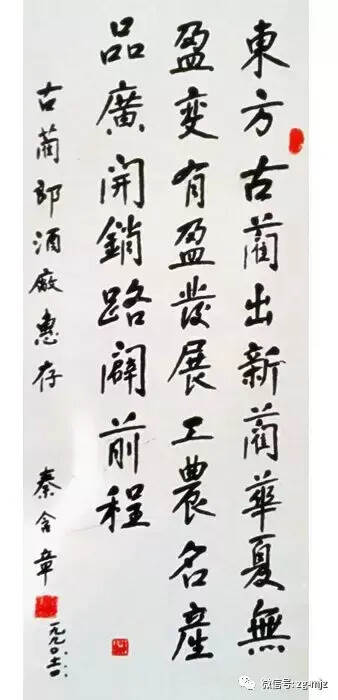 東方古藺出新藺華夏無
盈变有盈發展工農名產
品廣開銷路闢前程
古藺郎酒廠惠存
秦含章
一九九〇
微信号: zg-mjz